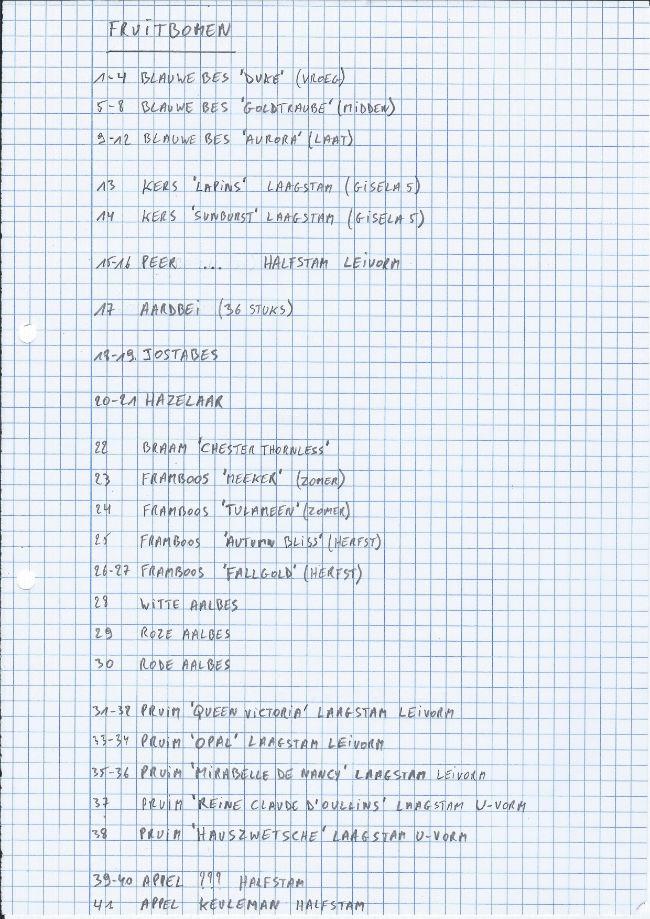 FRUITBOMEN
1-4 BLAUWE BES 'DUKE' (VROEG)
5-8 BLAUWE BES 'GOLDTRAUBE' (MIDDEN)
9-12 BLAUWE BES 'AURORA' (LAAT)
13 KERS 'LAPINS' LAAGSTAM (GISELA 5)
14 KERS 'SUNBURST' LAAGSTAM (GISELA 5)
15-16 PEER ... HALFSTAM LEIVORM
17 AARDBEI (36 STUKS)
18-19. JOSTABES
20-21 HAZELAAR
22 BRAAM 'CHESTER THORNLESS'
23 FRAMBOOS 'MEEKER' (ZOMER)
24 FRAMBOOS 'TULAMEEN' (ZOMER)
25 FRAMBOOS 'AUTUMN BLISS' (HERFST)
26-27 FRAMBOOS 'FALLGOLD' (HERFST)
28 WITTE AALBES
29 ROZE AALBES
30 RODE AALBES
31-32 PRUIM 'QUEEN VICTORIA' LAAGSTAM LEIVORM
33-34 PRUIM 'OPAL' LAAGSTAM LEIVORM
35-36 PRUIM 'MIRABELLE DE NANCY' LAAGSTAM LEIVORM
37 PRUIM 'REINE CLAUDE D'OULLINS' LAAGSTAM U-VORM
38 PRUIM 'HAUSZWETSCHE' LAAGSTAM U-VORM
39-40 APPEL ??? HALFSTAM
41 APPEL KEULEMAN HALFSTAM